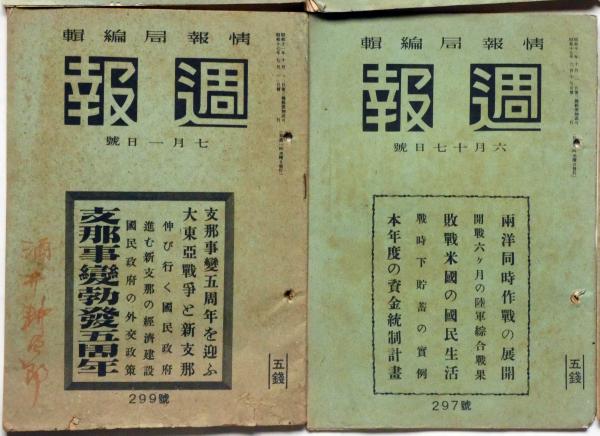 輯編局報情
報週
號日一月七
支那事變五周年を迎ふ
大東亞戰爭と新支那
伸び行く國民政府
進む新支那の經濟建設
國民政府の外交政策
支那事變勃發五周年
五錢
299號
輯編局報情
報週
號日七十月六
兩洋同時作戰の展開
開戰六ヶ月の陸軍綜合戰果
敗戰米國の國民生活
戰時下貯蓄の實例
本年度の資金統制計畫
五錢
297號